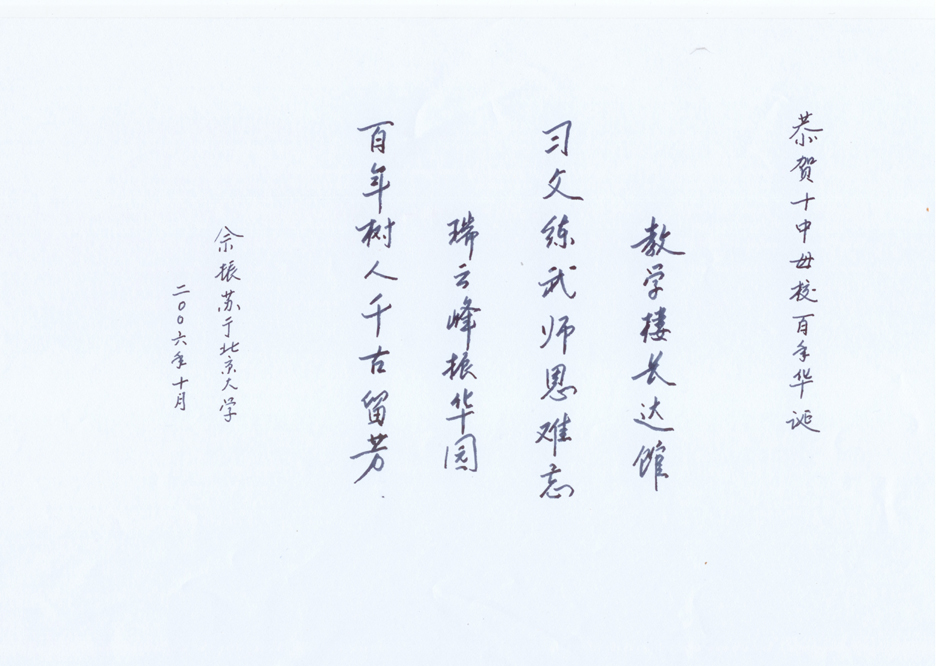 恭贺十中母校百年华诞
教学楼长达馆
习文练武师恩难忘
瑞云峰振华园
百年树人千古留芳
佘振苏于北京大学
二〇〇六年十月